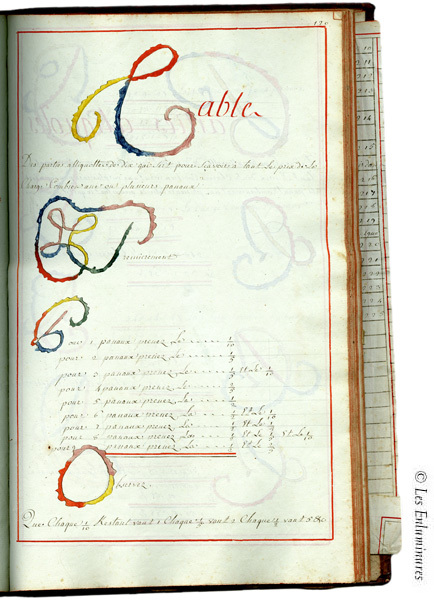 120
Table
Des parties aliquottes de dix qui sert pour sçavoir à tant le prix de la
Charge Combien une ou plusieurs panaux
Premierement
Pour 1 panaux prenez Le ..... 1/10
pour 2 panaux prenez Le ..... 1/5
pour 3 panaux prenez Le ..... 1/5 Et Le 1/10
pour 4 panaux prenez Le
pour 5 panaux prenez Le ..... 1/2
pour 6 panaux prenez Le ..... 1/2 Et Le 1/10
pour 7 panaux prenez Le ..... 1/2 Et Le 1/5
pour 8 panaux prenez Le ..... 1/2 Et Le 1/5 Et Le 1/10
pour panaux prenez Le Et Le
Observez
Que Chaque 1/10 Restant vaut 1 Chaque 1/5 vaut 2 Chaque 1/2 vaut 5 &c
© Les Enluminures